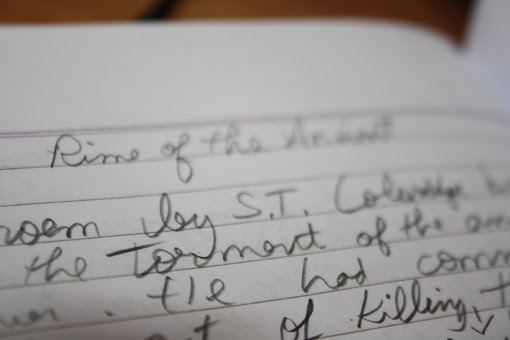 Rime of the Ancient
poem by S.T. Coleridge
the Torment of the
He had comm
of killing t